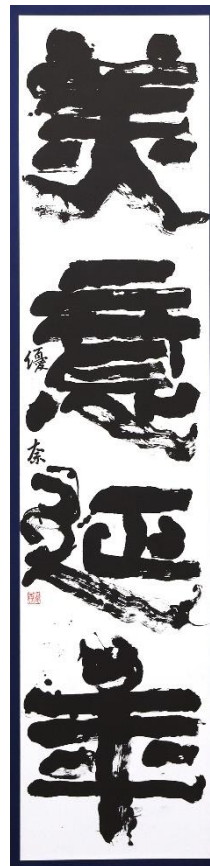 美意延年
優奈